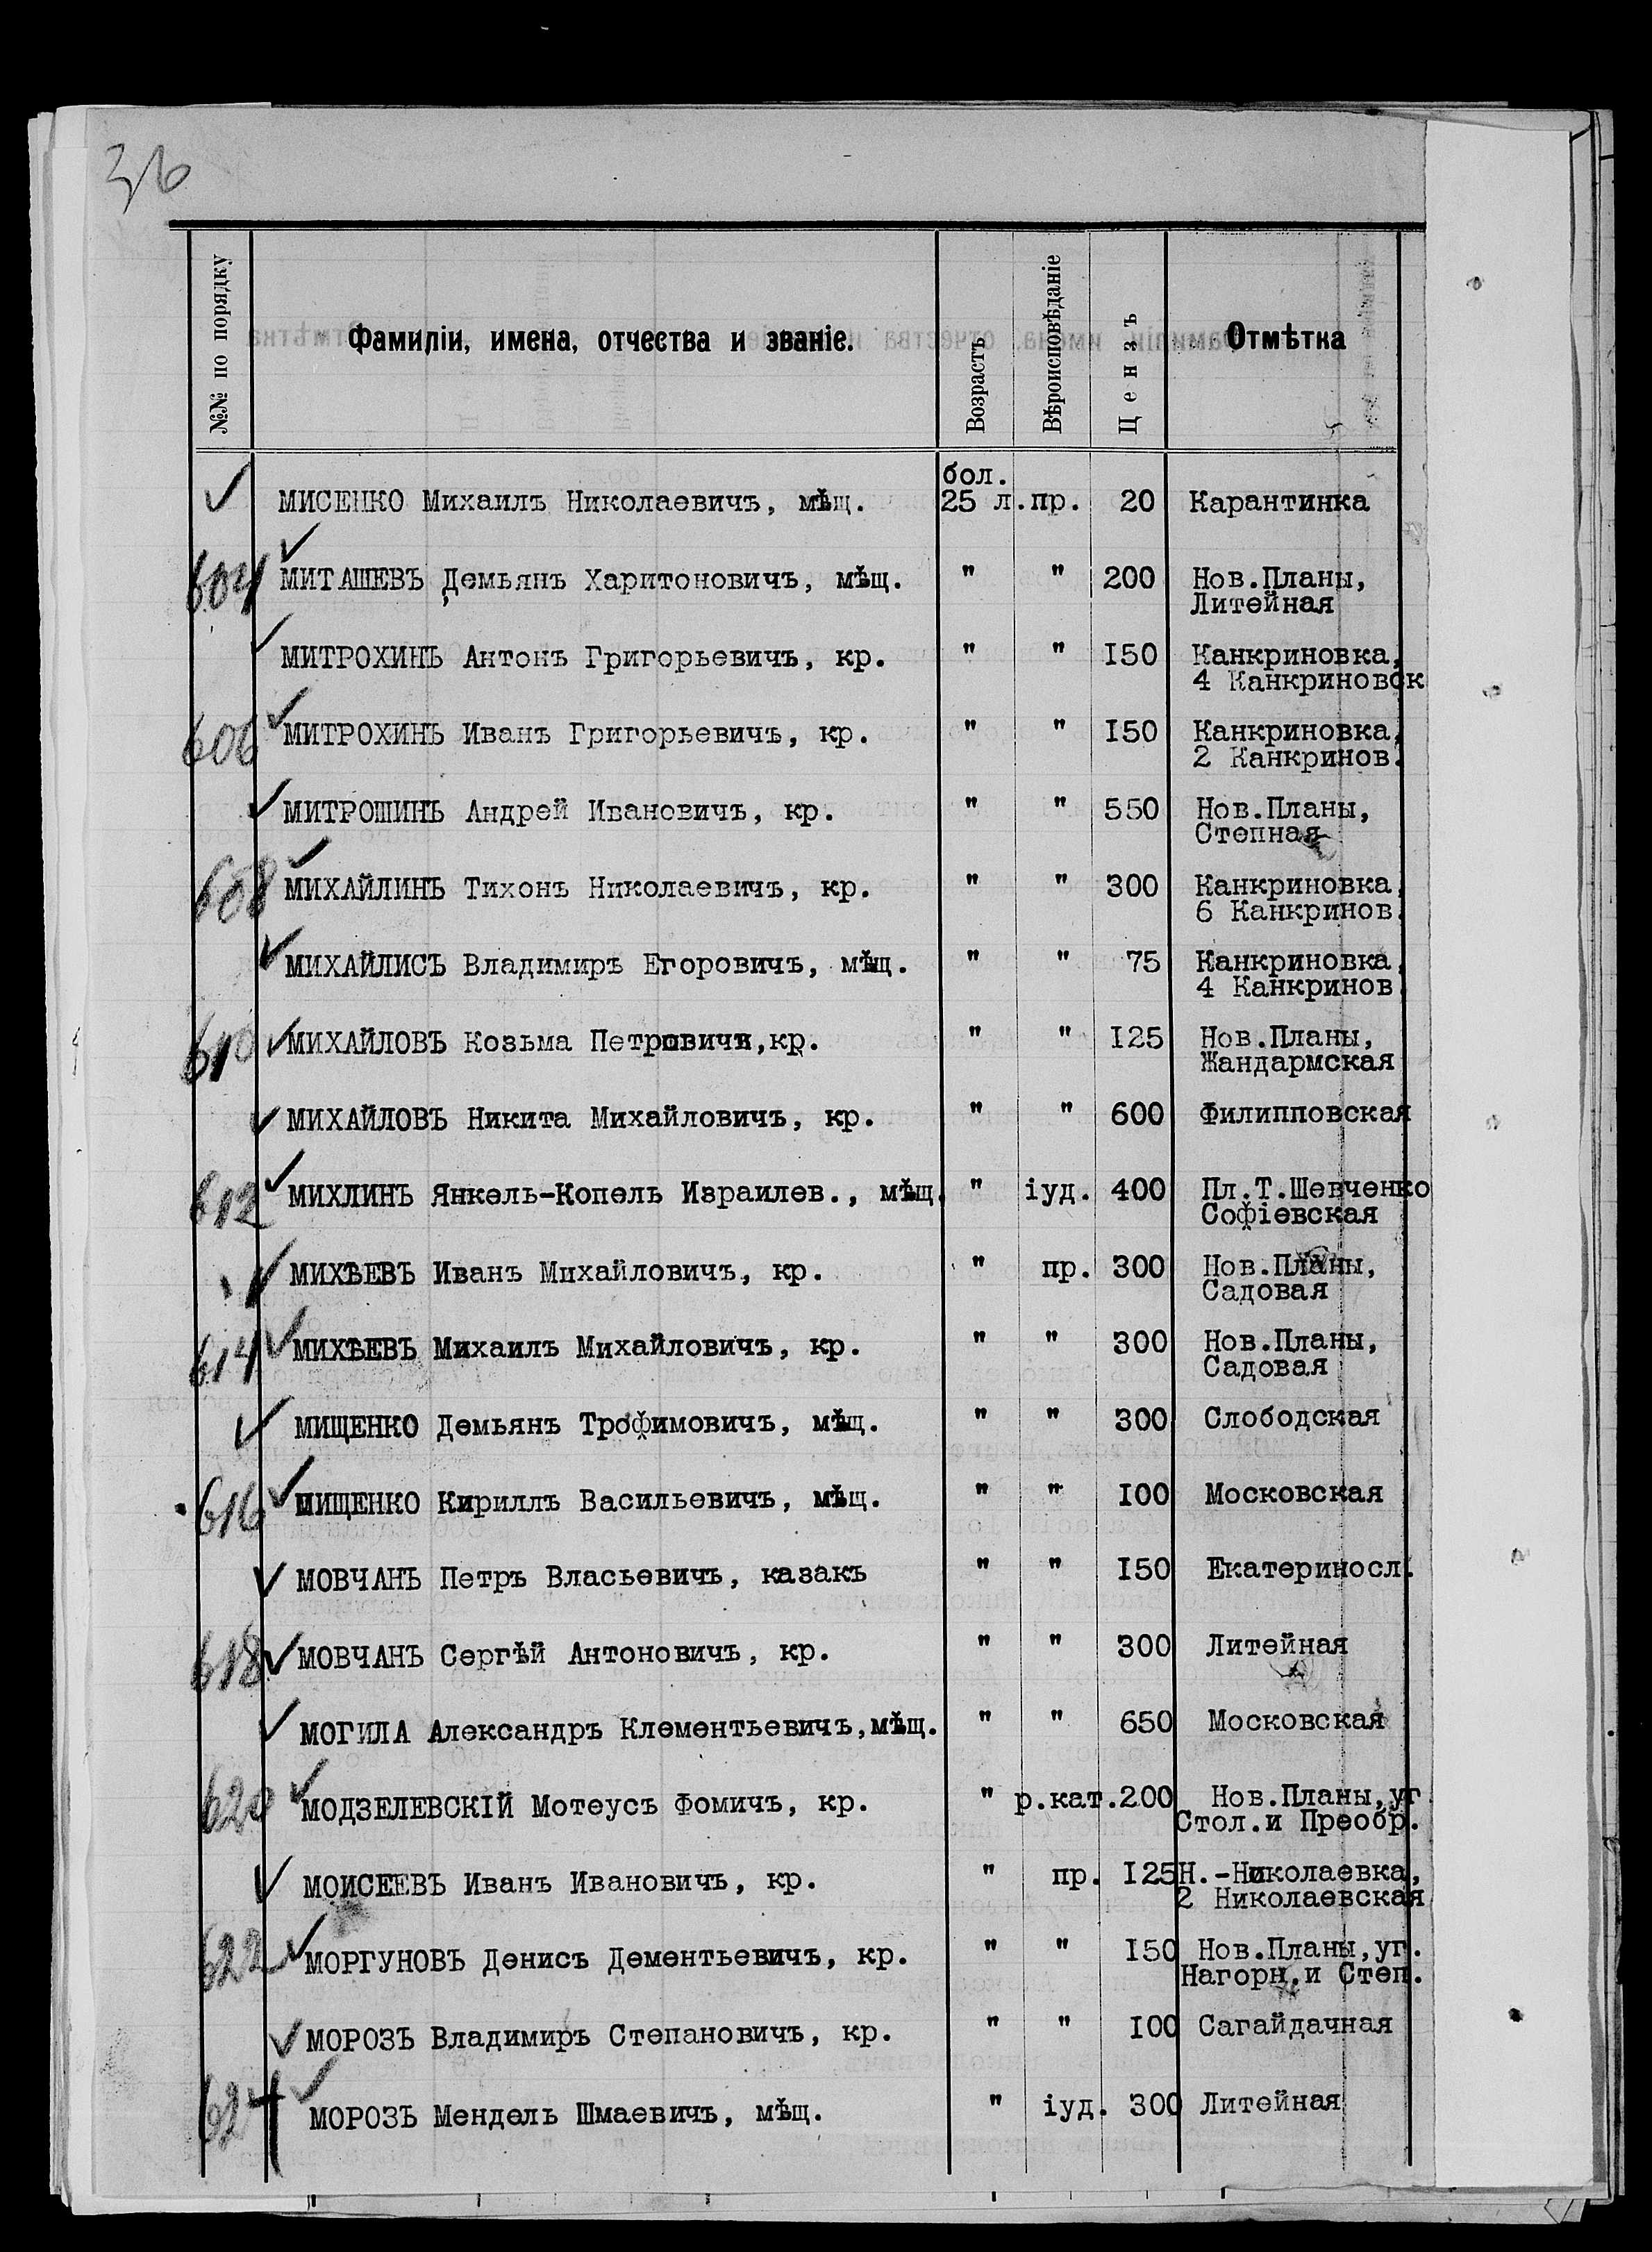 36
№№ по порядку
Фамиліи, имена, отчества и званіе.
Возрастъ
Вѣроисповѣданіе
Цензъ
Отмѣтка
бол.
МИСЕНКО Михаилъ Николаевичъ, мѣщ. 25 л. пр. 20 Карантинка
604 МИТАШЕВЪ Демьянъ Харитоновичъ, мѣщ. " " 200 Нов.Планы,
Литейная
МИТРОХИНЪ Антонъ Григорьевичъ, кр. " " 150 Канкриновка,
4 Канкриновск
606 МИТРОХИНЪ Иванъ Григорьевичъ, кр. " " 150 Канкриновка,
2 Канкринов.
МИТРОШИНЪ Андрей Ивановичъ, кр. " " 550 Нов.Планы,
Степная
608 МИХАЙЛИНЪ Тихонъ Николаевичъ, кр. " " 300 Канкриновка,
6 Канкринов.
МИХАЙЛИСЪ Владимиръ Егоровичъ, мѣщ. " " 75 Канкриновка,
4 Канкринов.
610 МИХАЙЛОВЪ Козьма Петровичъ,кр. " " 125 Нов.Планы,
Жандармская
МИХАЙЛОВЪ Никита Михайловичъ, кр. " " 600 Филипповская
612 МИХЛИНЪ Янкель-Копель Израилев., мѣщ. " іуд. 400 Пл.Т.Шевченко
Софіевская
МИХѢЕВЪ Иванъ Михайловичъ, кр. " пр. 300 Нов.Планы,
Садовая
614 МИХѢЕВЪ Михаилъ Михайловичъ, кр. " " 300 Нов.Планы,
Садовая
МИЩЕНКО Демьянъ Трофимовичъ, мѣщ. " " 300 Слободская
616 МИЩЕНКО Кириллъ Васильевичъ, мѣщ. " " 100 Московская
МОВЧАНЪ Петръ Власьевичъ, казакъ " " 150 Екатериносл.
618 МОВЧАНЪ Сергѣй Антоновичъ, кр. " " 300 Литейная
МОГИЛА Александръ Клементьевичъ,мѣщ. " " 650 Московская
620 МОДЗЕЛЕВСКІЙ Мотеусъ Фомичъ, кр. " р.кат. 200 Нов.Планы,уг
Стол.и Преобр.
МОИСЕЕВЪ Иванъ Ивановичъ, кр. " пр. 125 Н.-Николаевка,
2 Николаевская
622 МОРГУНОВЪ Денисъ Дементьевичъ, кр. " " 150 Нов.Планы,уг.
Нагорн.и Степ.
МОРОЗЪ Владимиръ Степановичъ, кр. " " 100 Сагайдачная
624 МОРОЗЪ Мендель Шмаевичъ, мѣщ. " іуд. 300 Литейная